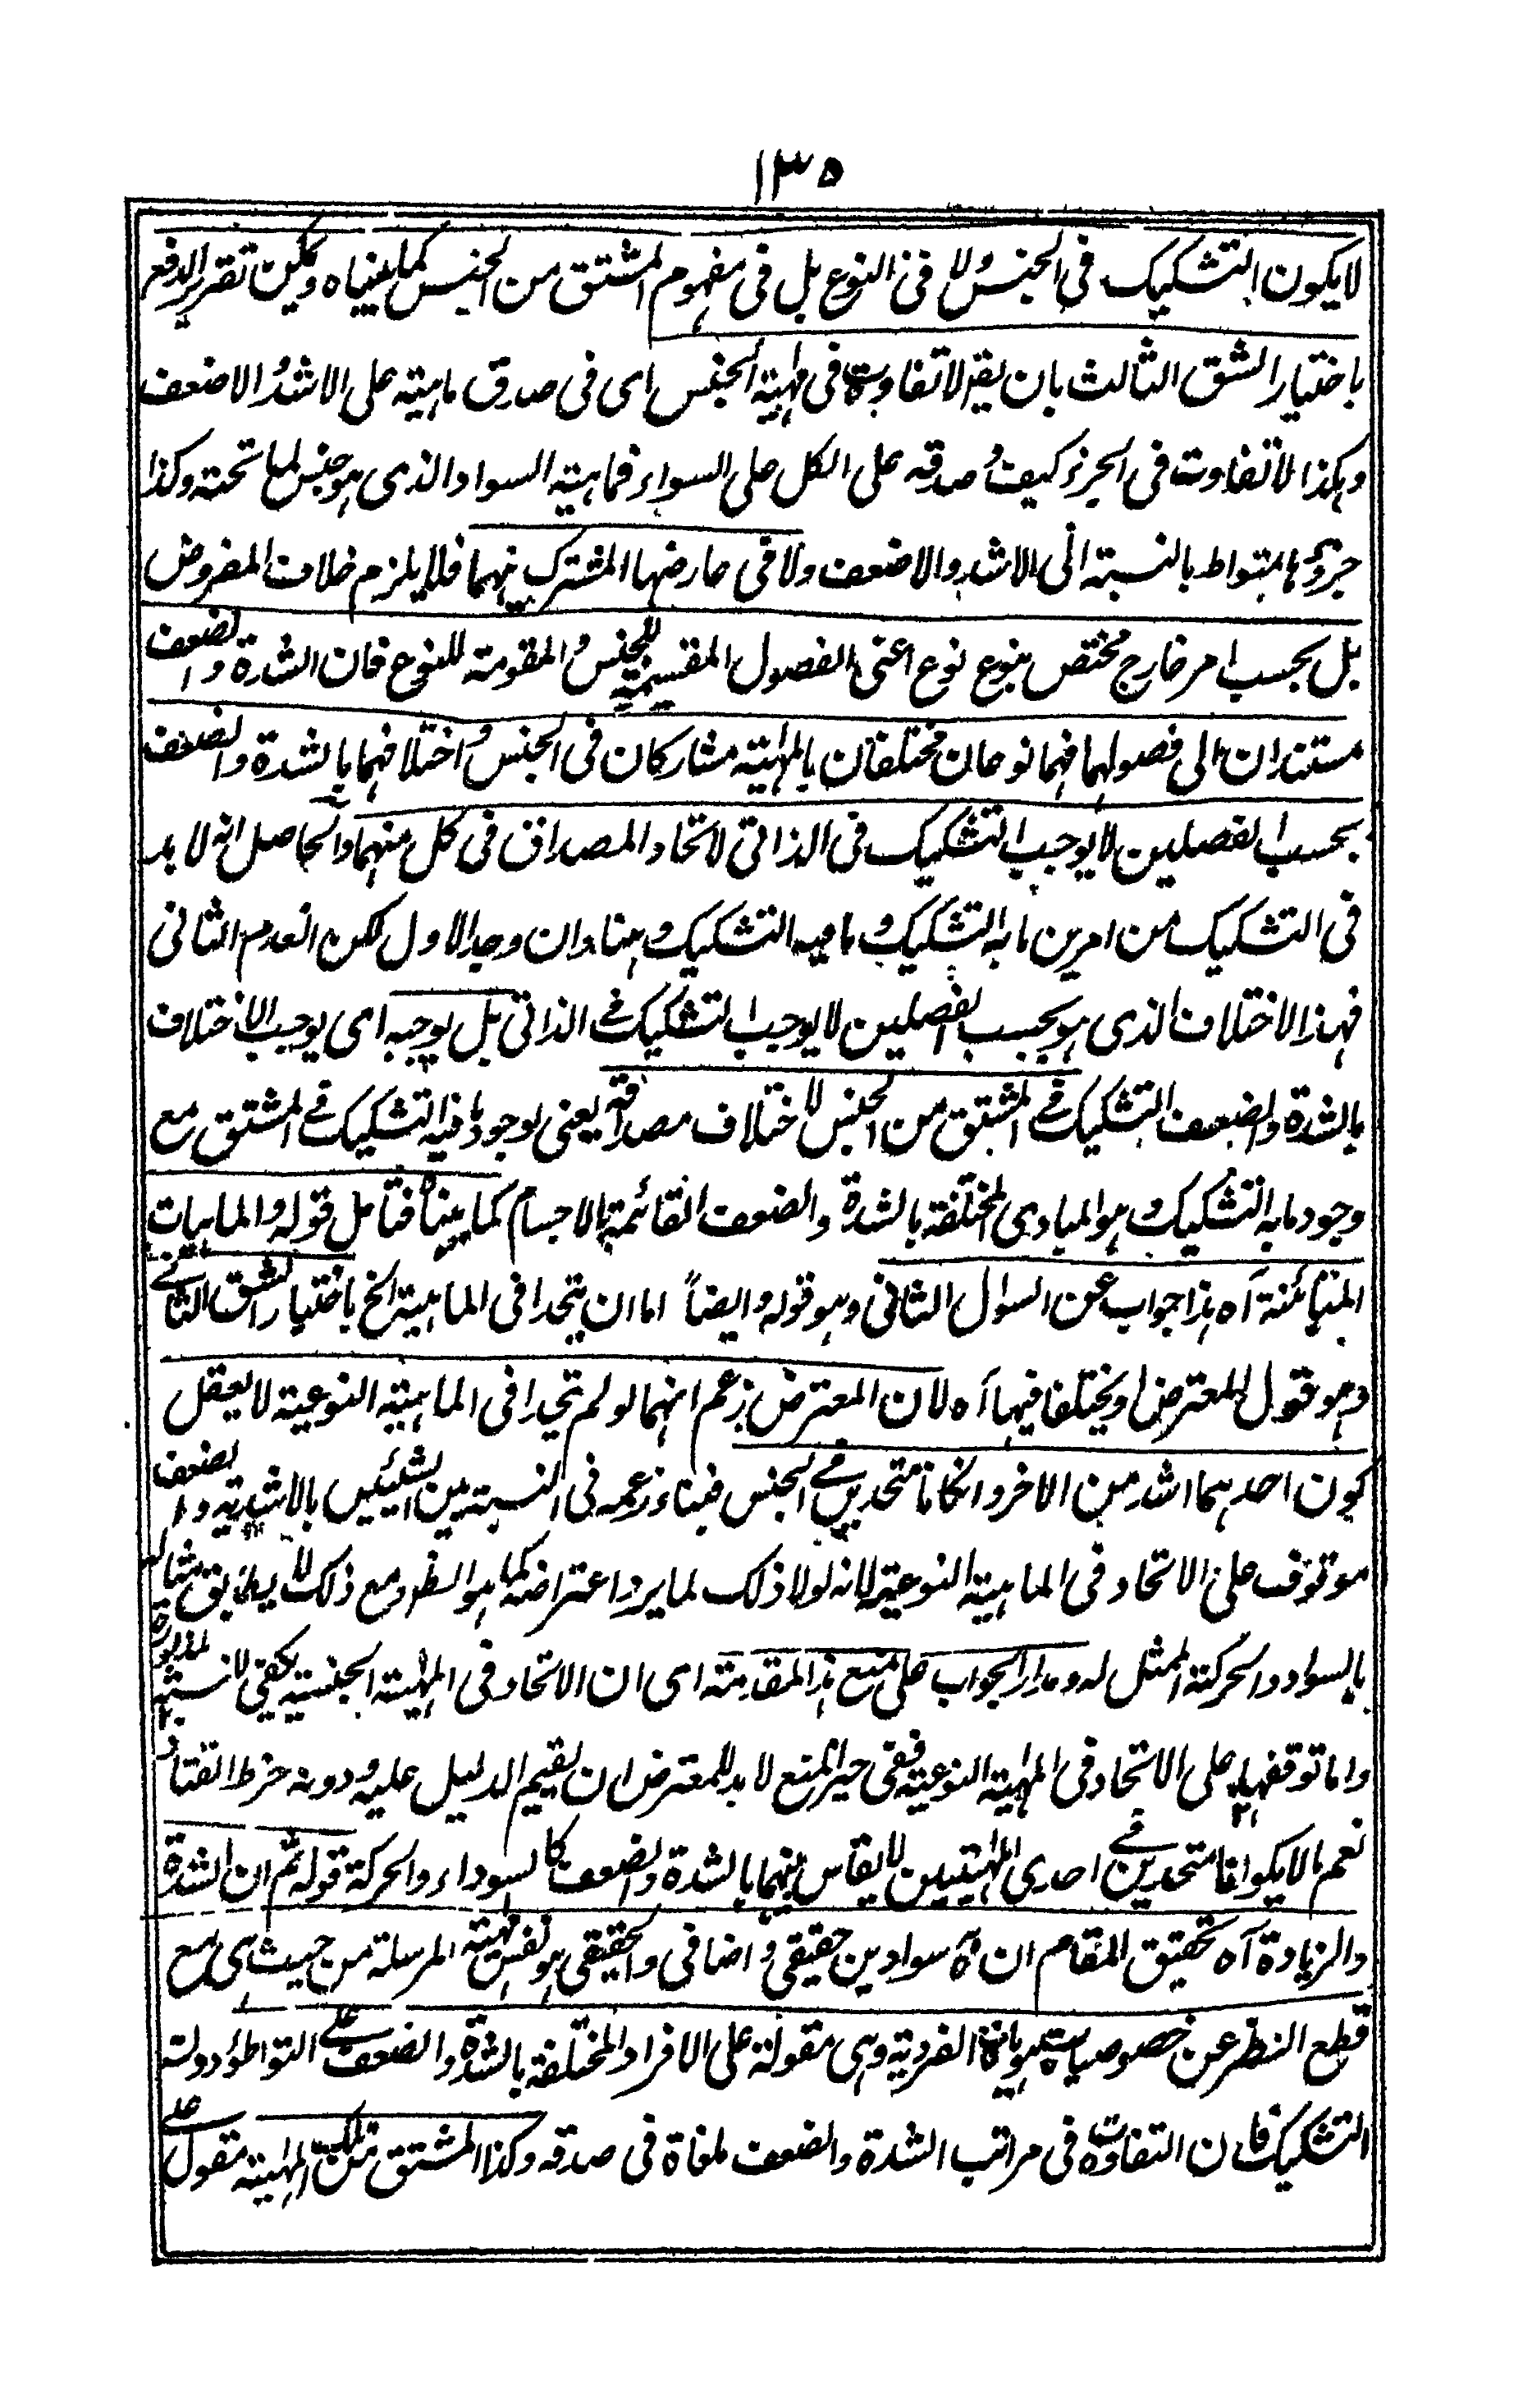 ١٣٥
لا يكون التشكيك في الجنس ولا في النوع بل في مفهوم المشتق من الجنس كما بيناه ويمكن تقرير الدفع
باختيار الشق الثالث بان يقر لا تفاوت في مهية الجنس اى في صدق ماهيته على الاشد والاضعف
وهكذا لا تفاوت في الجزء كيف وصدقه على الكل على السواء فماهية السواد الذى هو جنس لما تحته وكذا
جزؤها متواط بالنسبة الى الاشد والاضعف ولا في عارضها المشترك بينهما فلا يلزم خلاف المفروض
بل بحسب امر خارج مختص بنوع نوع اعنى الفصول المقسمة للجنس والمقومة للنوع فان الشدة والضعف
مستندان الى فصولهما فهما نوعان مختلفان بالمهية مشاركان في الجنس واختلافهما بالشدة والضعف
بحسب الفصلين لا يوجب التشكيك في الذاتى لاتحاد المصداق في كل منهما والحاصل انه لا بد
في التشكيك من امرين ما به التشكيك وما فيه التشكيك وهنا وان وجد الاول لكن انعدم الثانى
فهذا الاختلاف الذى هو بحسب الفصلين لا يوجب التشكيك في الذاتى بل يوجبه اى يوجب الاختلاف
بالشدة والضعف التشكيك في المشتق من الجنس لاختلاف مصداقه يعنى لوجود ما فيه التشكيك في المشتق مع
وجود ما به التشكيك وهو المبادى المختلفة بالشدة والضعف القائمة بالاجسام كما بيناه فتامل قوله والماهيات
المتبائنة آه هذا جواب عن السوال الثانى وهو قوله وايضاً اما ان يتحدا في الماهية الخ باختيار الشق الثانى
وهو قول المعترض او يختلفا فيها آه لان المعترض زعم انهما لو لم يتحدا في الماهية النوعية لا يعقل
كون احدهما اشد من الاخر وان كانا متحدين في الجنس فبناء زعمه في النسبة بين الشيئين بالاشدية والضعف
موقوف على الاتحاد في الماهية النوعية لانه لولا ذلك لما يرد اعتراضه كما هو الظ ومع ذلك لا يطابق مثاله
بالسواد والحركة الممثل له ومدار الجواب على منع هذا المقدمة اى ان الاتحاد في المهية الجنسية يكفى لانسبة المذكورة
واما توقفها على الاتحاد في المهية النوعية ففى حيز المنع لا بد للمعترض ان يقيم الدليل عليه ودونه خرط القتاد
نعم ما لا يكونا متحدين في احدى المهيتين لا يقاس بينهما بالشدة والضعف كالسوداء والحركة قوله ثم ان الشدة
والزيادة آه تحقيق المقام ان ههنا سوادين حقيقى واضافى والحقيقى هو نفس مهيته المرسلة من حيث هى مع
قطع النظر عن خصوصيات هوياته الفردية وهى مقولة على الافراد المختلفة بالشدة والضعف على التواطؤ دون
التشكيك فان التفاوت في مراتب الشدة والضعف ملغاة في صدقه وكذا المشتق من تلك المهية مقول على